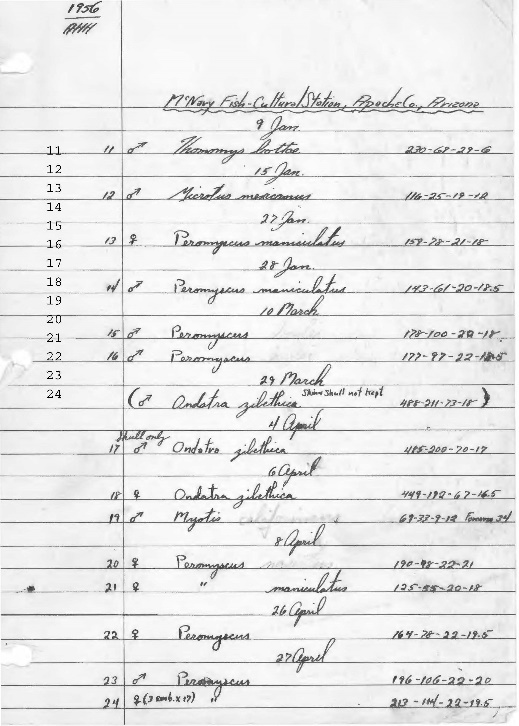 1956
AHH
McNary Fish-Cultural Station, Apache Co., Arizona
9 Jan.
11 11 ♂ Thomomys bottae 230-68-29-6
12 15 Jan.
13 12 ♂ Microtus mexicanus 116-25-19-12
14 27 Jan.
15
16 13 ♀ Peromyscus maniculatus 159-78-21-18
17 28 Jan.
18 14 ♂ Peromyscus maniculatus 143-61-20-18.5
19 10 March
20
21 15 ♂ Peromyscus 178-100-22-18
22 16 ♂ Peromyscus 177-97-22-18.5
23 29 March
24 (♂ Ondatra zibethica Skin & Skull not kept 488-211-73-18)
4 April
Skull only
17 ♂ Ondatra zibethica 485-200-70-17
6 April
18 ♀ Ondatra zibethica 449-192-67-16.5
19 ♂ Myotis 69-33-9-12 Forearm 34
8 April
20 ♀ Peromyscus 190-98-22-21
21 ♀ " maniculatus 125-55-20-18
26 April
22 ♀ Peromyscus 164-78-22-19.5
27 April
23 ♂ Peromyscus 196-106-22-20
24 ♀ (3 emb. x 17) " 213-114-22-19.5